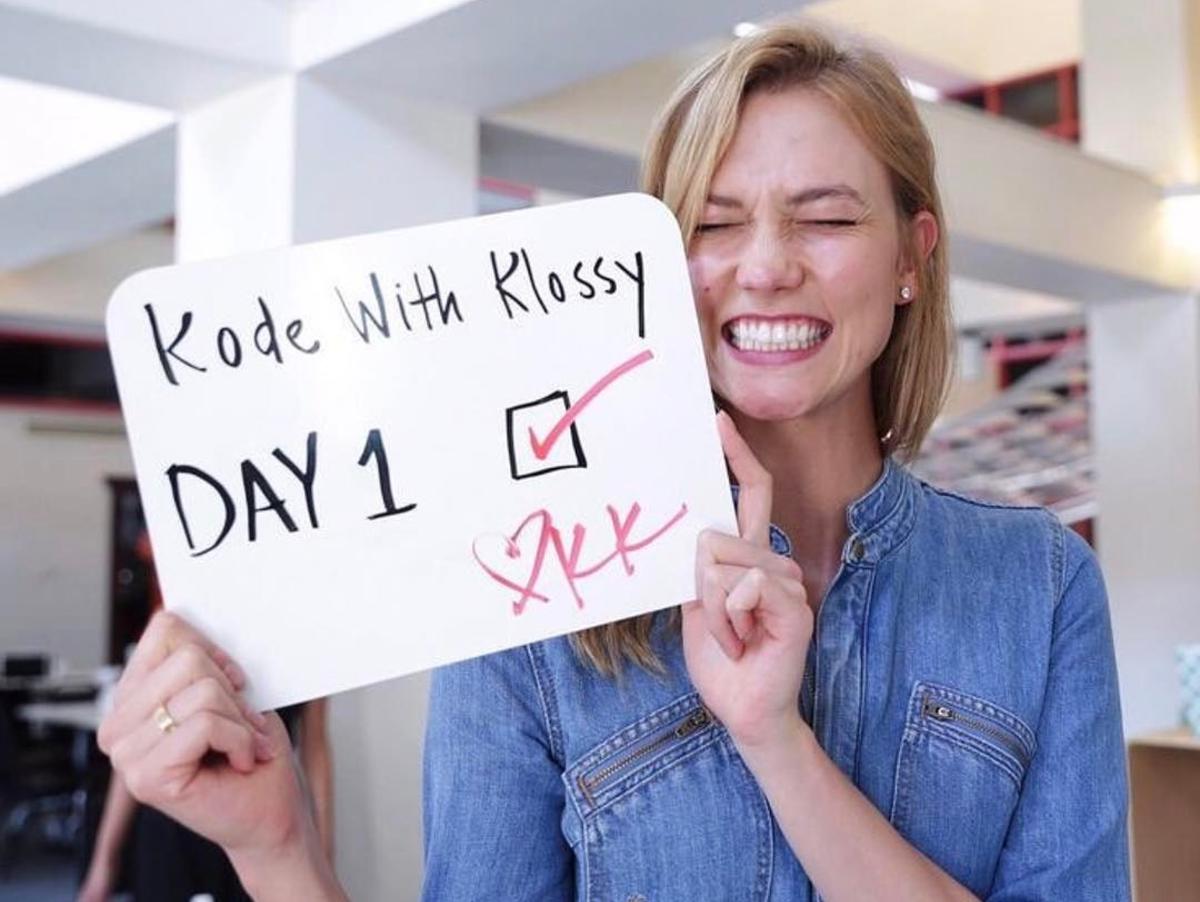 Kode With Klossy
DAY 1
XKK